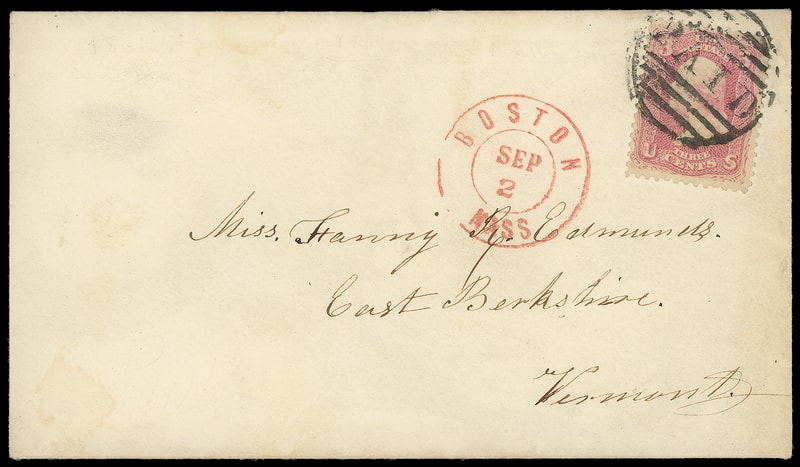 3
U.S.
POSTAGE
PAID
THREE
CENTS
U S
BOSTON
SEP
2
MASS.
Miss. Fanny R. Edmunds.
East Berkshire.
Vermont.